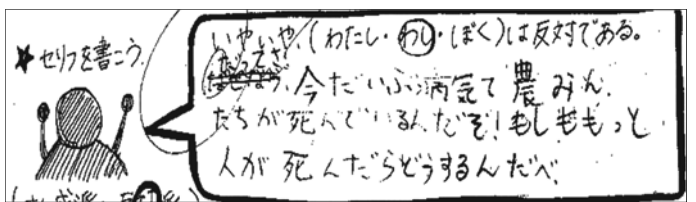 ★セリフを書こう。
いやいや、(わたし・わし・ぼく)は反対である。
たってさ、今だいぶ病気で農みん
たちが死んでいるんだぞ!もしももっと
人が死んだらどうするんだべ。